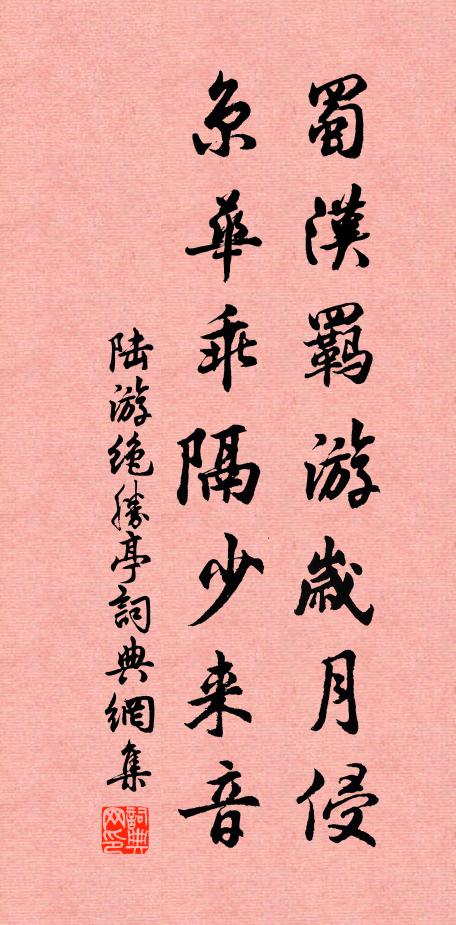 蜀漢羈游歲月侵
京華乖隔少来音
陆游绝胜亭詞典網集
詞典网印